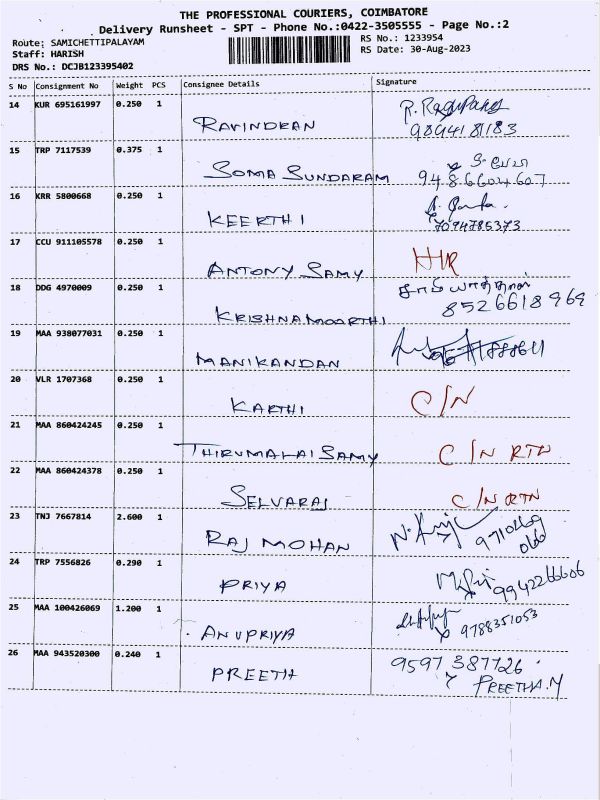 THE PROFESSIONAL COURIERS, COIMBATORE
Delivery Runsheet - SPT - Phone No.:0422-3505555 - Page No.:2
Route: SAMICHETTIPALAYAM
RS No.: 1233954
Staff: HARISH
RS Date: 30-Aug-2023
DRS No.: DCJB123395402
S No Consignment No Weight PCS Consignee Details Signature
14 KUR 695161997 0.250 1
RAVINDRAN 9894181183
15 TRP 7117539 0.375 1
SOMA SUNDARAM 9486604607
16 KRR 5800668 0.250 1
KEERTHI 7094785373
17 CCU 911105578 0.250 1
ANTONY SAMY
18 DDG 4970009 0.250 1
KRISHNAMOORTHI 8526618969
19 MAA 938077031 0.250 1
MANIKANDAN
20 VLR 1707368 0.250 1
KARTHI C/N
21 MAA 860424245 0.250 1
THIRUMALAI SAMY C/N RTN
22 MAA 860424378 0.250 1
SELVARAJ C/N RTN
23 TNJ 7667814 2.600 1
RAJ MOHAN 9710269
066
24 TRP 7556826 0.290 1
PRIYA 9942266606
25 MAA 100426069 1.200 1
ANUPRIYA 9788351053
26 MAA 943520300 0.240 1 9597 387726
PREETH PREETHA.M